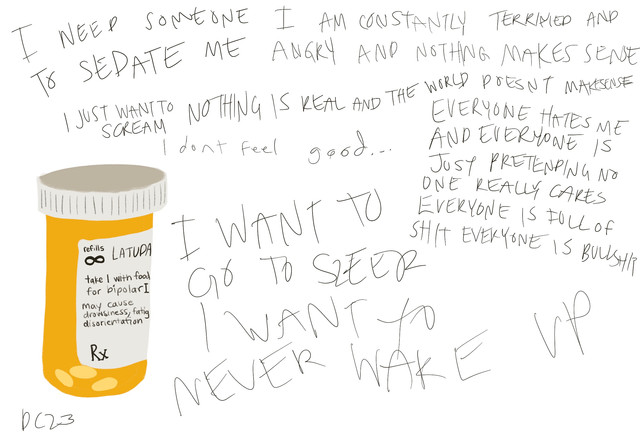 I NEED SOMEONE I AM CONSTANTLY TERRIFIED AND
TO SEDATE ME ANGRY AND NOTHING MAKES SENSE
I JUST WANT TO
SCREAM
NOTHING IS REAL AND THE WORLD DOESNT MAKESENSE
I dont feel good...
EVERYONE HATES ME
AND EVERYONE IS
JUST PRETENDING NO
ONE REALLY CARES
EVERYONE IS FULL OF
SHIT EVERYONE IS BULLSHIT
I WANT TO
GO TO SLEEP
I WANT TO
NEVER WAKE UP
refills
∞ LATUDA
take 1 with food
for bipolar I
may cause
drowsiness, fatig
disorientation
Rx
DC23